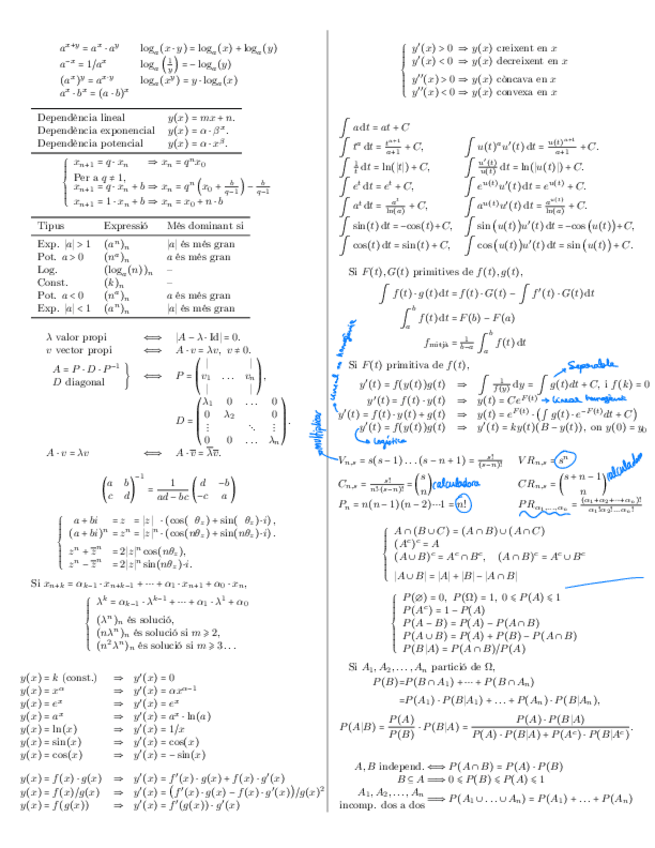 a^{x+y} = a^x · a^y    log_a(x·y) = log_a(x) + log_a(y)
a^{-x} = 1/a^x    log_a(1/y) = −log_a(y)
(a^x)^y = a^{x·y}    log_a(x^y) = y·log_a(x)
a^x · b^x = (a·b)^x
Dependència lineal    y(x) = mx + n.
Dependència exponencial    y(x) = α·β^x.
Dependència potencial    y(x) = α·x^β.
x_{n+1} = q·x_n ⇒ x_n = q^n x_0
Per a q ≠ 1,
x_{n+1} = q·x_n + b ⇒ x_n = q^n (x_0 + b/(q−1)) − b/(q−1)
x_{n+1} = 1·x_n + b ⇒ x_n = x_0 + n·b
Tipus    Expressió    Més dominant si
Exp. |a| > 1    (a^n)_n    |a| és més gran
Pot. a > 0    (n^a)_n    a és més gran
Log.    (log_a(n))_n    –
Const.    (k)_n    –
Pot. a < 0    (n^a)_n    a és més gran
Exp. |a| < 1    (a^n)_n    |a| és més gran
λ valor propi ⟺ |A − λ·Id| = 0.
v vector propi ⟺ A·v = λv, v ≠ 0.
A = P·D·P^{-1}
D diagonal } ⟺ P = ( | | ; v_1 … v_n ; | | ),
D = ( λ_1 0 … 0 ; 0 λ_2 0 ; ⋮ ⋱ ⋮ ; 0 0 … λ_n ).
A·v = λv ⟺ A·v̅ = λ̅v̅.
(a b ; c d)^{-1} = 1/(ad−bc) (d −b ; −c a)
a + bi = z = |z|·(cos( θ_z) + sin( θ_z)·i),
(a + bi)^n = z^n = |z|^n·(cos(nθ_z) + sin(nθ_z)·i).
z^n + z̅^n = 2|z|^n cos(nθ_z),
z^n − z̅^n = 2|z|^n sin(nθ_z)·i.
Si x_{n+k} = α_{k−1}·x_{n+k−1} + ⋯ + α_1·x_{n+1} + α_0·x_n,
λ^k = α_{k−1}·λ^{k−1} + ⋯ + α_1·λ^1 + α_0
(λ^n)_n és solució,
(nλ^n)_n és solució si m ⩾ 2,
(n^2λ^n)_n és solució si m ⩾ 3…
y(x) = k (const.) ⇒ y′(x) = 0
y(x) = x^α ⇒ y′(x) = αx^{α−1}
y(x) = e^x ⇒ y′(x) = e^x
y(x) = a^x ⇒ y′(x) = a^x·ln(a)
y(x) = ln(x) ⇒ y′(x) = 1/x
y(x) = sin(x) ⇒ y′(x) = cos(x)
y(x) = cos(x) ⇒ y′(x) = −sin(x)
y(x) = f(x)·g(x) ⇒ y′(x) = f′(x)·g(x) + f(x)·g′(x)
y(x) = f(x)/g(x) ⇒ y′(x) = (f′(x)·g(x) − f(x)·g′(x))/g(x)^2
y(x) = f(g(x)) ⇒ y′(x) = f′(g(x))·g′(x)
y′(x) > 0 ⇒ y(x) creixent en x
y′(x) < 0 ⇒ y(x) decreixent en x
y″(x) > 0 ⇒ y(x) còncava en x
y″(x) < 0 ⇒ y(x) convexa en x
∫ a dt = at + C
∫ t^a dt = t^{a+1}/(a+1) + C,    ∫ u(t)^a u′(t) dt = u(t)^{a+1}/(a+1) + C.
∫ 1/t dt = ln(|t|) + C,    ∫ u′(t)/u(t) dt = ln(|u(t)|) + C.
∫ e^t dt = e^t + C,    ∫ e^{u(t)} u′(t) dt = e^{u(t)} + C.
∫ a^t dt = a^t/ln(a) + C,    ∫ a^{u(t)} u′(t) dt = a^{u(t)}/ln(a) + C.
∫ sin(t) dt = −cos(t) + C,    ∫ sin(u(t)) u′(t) dt = −cos(u(t)) + C,
∫ cos(t) dt = sin(t) + C,    ∫ cos(u(t)) u′(t) dt = sin(u(t)) + C.
Si F(t), G(t) primitives de f(t), g(t),
∫ f(t)·g(t) dt = f(t)·G(t) − ∫ f′(t)·G(t) dt
∫_a^b f(t) dt = F(b) − F(a)
f_mitjà = 1/(b−a) ∫_a^b f(t) dt
Si F(t) primitiva de f(t),
Separable
y′(t) = f(y(t))g(t) ⇒ ∫ 1/f(y) dy = ∫ g(t)dt + C, i f(k) = 0
y′(t) = f(t)·y(t) ⇒ y(t) = Ce^{F(t)} → Linear homogènia
y′(t) = f(t)·y(t) + g(t) ⇒ y(t) = e^{F(t)}·(∫ g(t)·e^{−F(t)} dt + C)
y′(t) = f(y(t))g(t) ⇒ y′(t) = ky(t)(B − y(t)), on y(0) = y_0
Logística
V_{n,s} = s(s−1)…(s−n+1) = s!/(s−n)!    VR_{n,s} = s^n
C_{n,s} = s!/(n!·(s−n)!) = (s n) calculadora    CR_{n,s} = (s+n−1 n) calculadora
P_n = n(n−1)(n−2)⋯1 = n!    PR_{α_1,…,α_n} = (α_1+α_2+⋯+α_n)!/(α_1!α_2!…α_n!)
A ∩ (B ∪ C) = (A ∩ B) ∪ (A ∩ C)
(A^c)^c = A
(A ∪ B)^c = A^c ∩ B^c, (A ∩ B)^c = A^c ∪ B^c
|A ∪ B| = |A| + |B| − |A ∩ B|
P(∅) = 0, P(Ω) = 1, 0 ⩽ P(A) ⩽ 1
P(A^c) = 1 − P(A)
P(A − B) = P(A) − P(A ∩ B)
P(A ∪ B) = P(A) + P(B) − P(A ∩ B)
P(B|A) = P(A ∩ B)/P(A)
Si A_1, A_2, …, A_n partició de Ω,
P(B) = P(B ∩ A_1) + ⋯ + P(B ∩ A_n)
= P(A_1)·P(B|A_1) + … + P(A_n)·P(B|A_n),
P(A|B) = P(A)/P(B) · P(B|A) = P(A)·P(B|A)/(P(A)·P(B|A) + P(A^c)·P(B|A^c)).
A, B independ. ⟺ P(A ∩ B) = P(A)·P(B)
B ⊆ A ⟹ 0 ⩽ P(B) ⩽ P(A) ⩽ 1
A_1, A_2, …, A_n
incomp. dos a dos ⟹ P(A_1 ∪ … ∪ A_n) = P(A_1) + … + P(A_n)